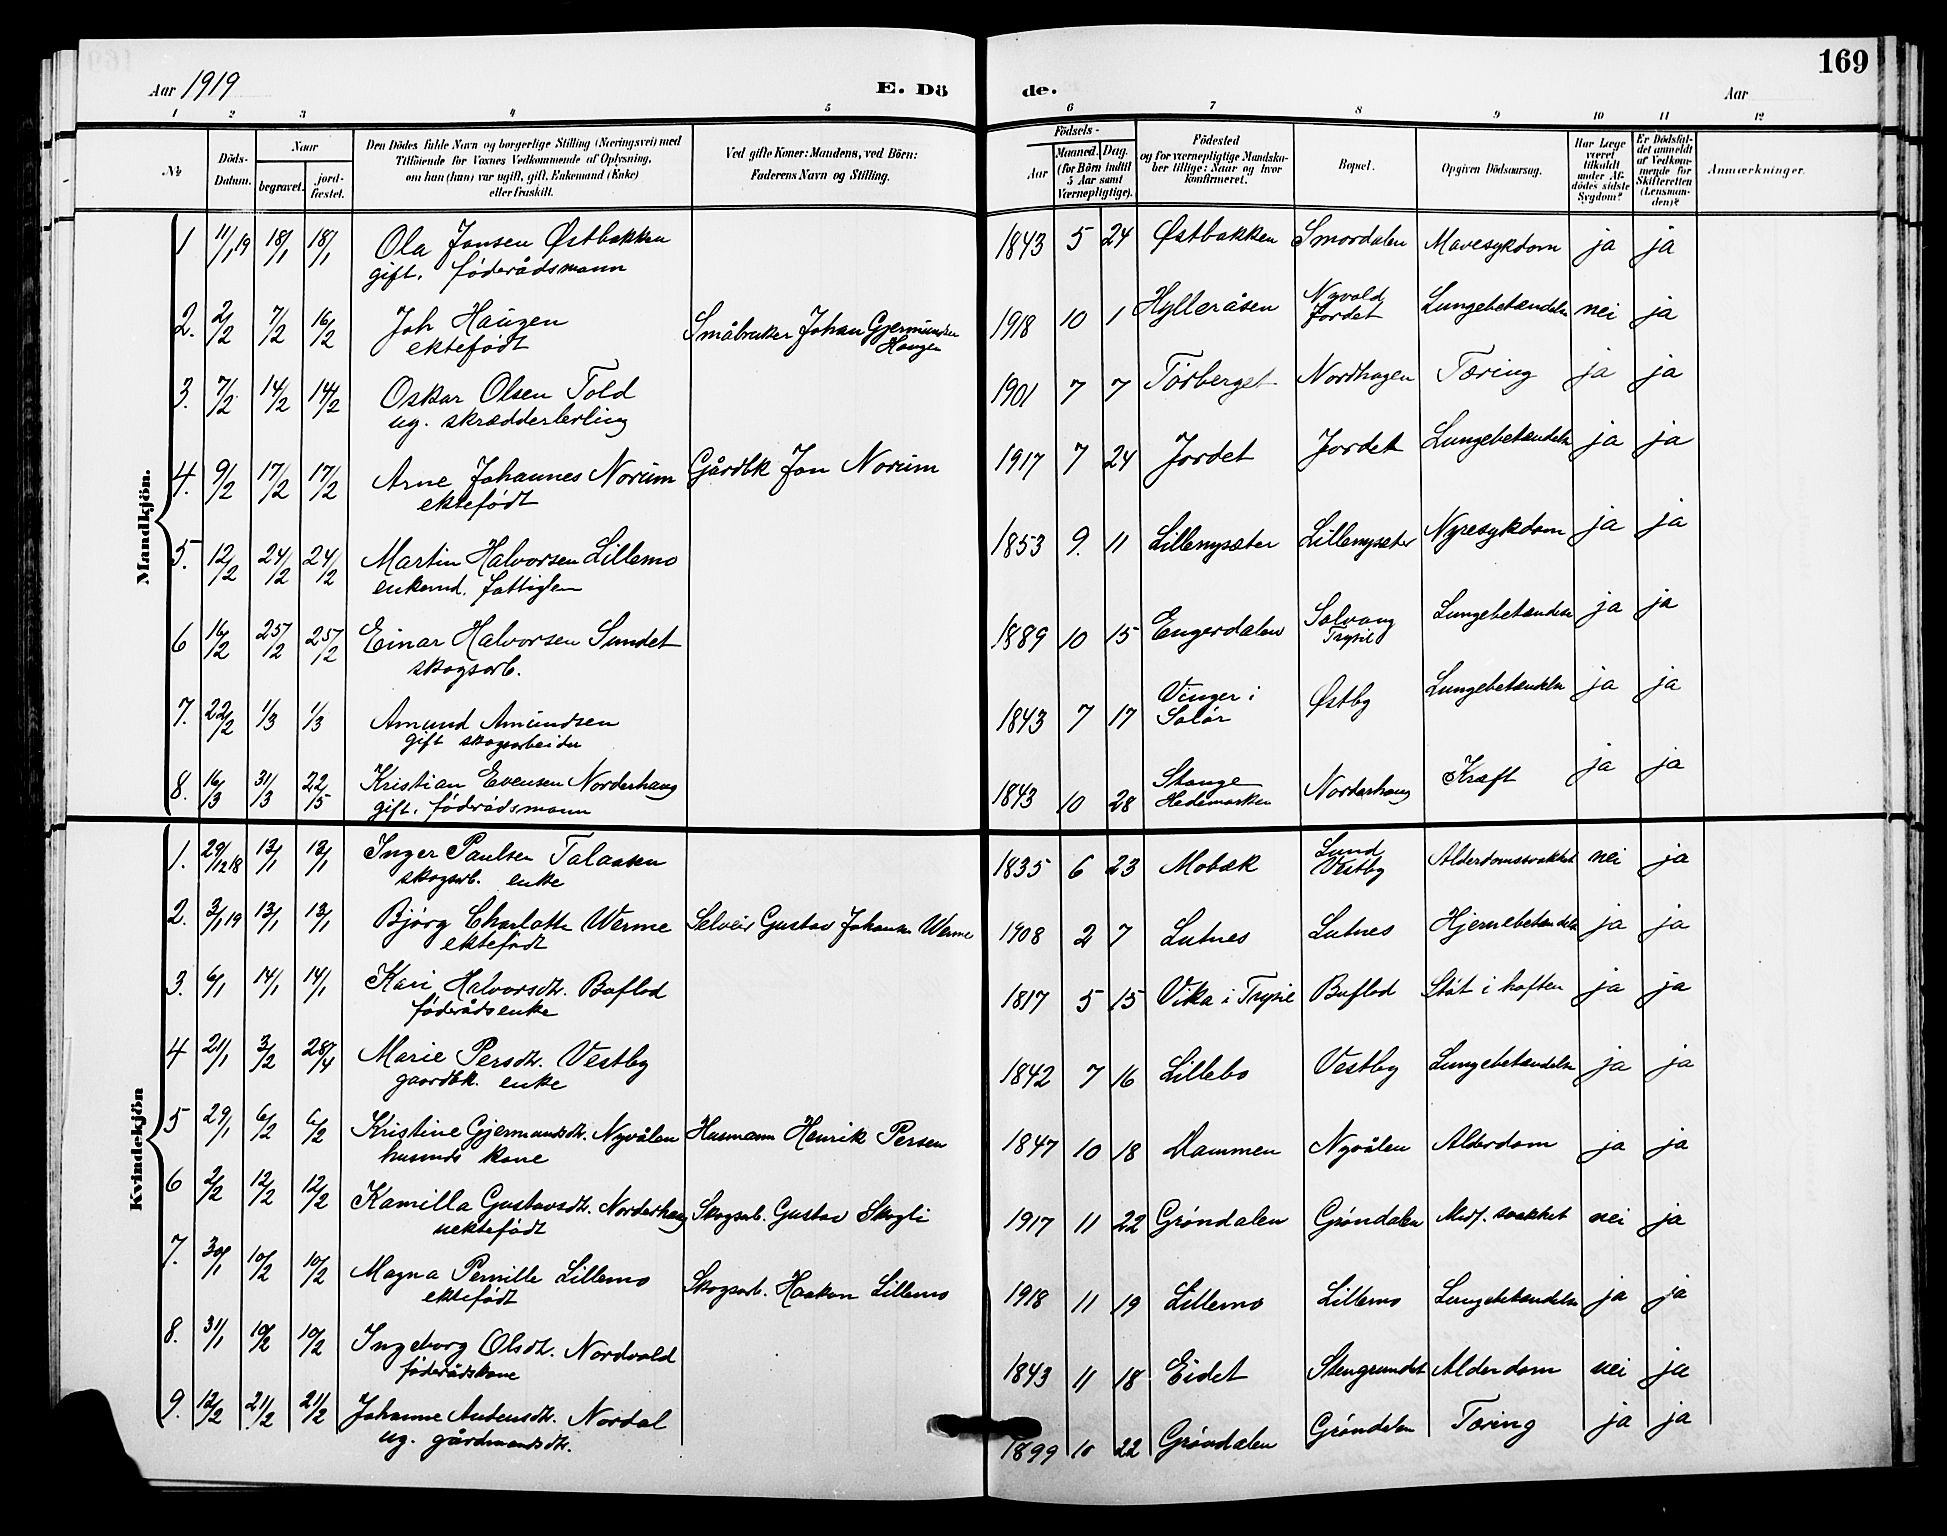 169
Aar 1919
E. Dö
de.
Aar
1 2 3 4 5 6 7 8 9 10 11 12
№
Döds-Datum.
Naar
begravet.
jord-fæstet.
Den Dödes fulde Navn og borgerlige Stilling (Næringsvei) med
Tilföiende for Voxnes Vedkommende af Oplysning,
om han (hun) var ugift, gift, Enkemand (Enke)
eller fraskilt.
Ved gifte Koner: Mandens, ved Börn:
Faderens Navn og Stilling.
Födsels-
Aar
Maaned. Dag.
(for Börn indtil
5 Aar samt
Værnepligtige).
Födested
og for værnepligtige Mandska-
ber tillige: Naar og hvor
konfirmeret.
Bopæl.
Opgiven Dödsaarsag.
Har Læge
været
tilkaldt
under Af-
dödes sidste
Sygdom?
Er Dödsfal-
det anmeldt
af Vedkom-
mende for
Skifteretten
(Lensman-
den)?
Anmærkninger.
Mandkjön.
1 11/1 19 18/1 18/1 Ola Jonsen Østbakken 1843 5 24 Østbakken Smordalen Mavesykdom ja ja
gift. föderådsmann
2. 2/2 7/2 16/2 Joh Haugen Småbruker Johan Gjermundsen 1918 10 1 Hylleråsen Nyvold Lungebetændelse nei ja
ektefödt Haugen Jordet
3. 7/2 14/2 14/2 Oskar Olsen Told 1901 7 7 Törberget Nordhagen Tæring ja ja
ug. skrædderlerling
4. 9/2 17/2 17/2 Arne Johannes Norum Gårdbk Jon Norum 1917 7 24 Jordet Jordet Lungebetændelse ja ja
ektefödt
5. 12/2 24/2 24/2 Martin Halvorsen Lillemo 1853 9. 11 Lillenysæter Lillenysæter Nyresykdom ja ja
enkemd. fattiglem
6 16/2 25/2 25/2 Einar Halvorsen Sundet 1889 10 15 Engerdalen Solvang Lungebetændelse ja ja
skogsarb. Trysil
7. 22/2 1/3 1/3 Amund Amundsen 1843 7 17 Vinger i Østby Lungebetændelse ja ja
gift skogsarbeider Solör
8. 16/3 31/3 22/5 Kristian Evensen Norderhaug 1843 10 28 Stange Norderhaug Kræft ja ja
gift. föderådsmann Hedemarken
Kvindekjön
1. 29/12 18 13/1 13/1 Inger Paulsen Talaasen 1835 6 23 Mobæk Lund Alderdomssvakhet nei ja
skogsarb. enke Vestby
2. 3/1 19 13/1 13/1 Björg Charlotte Werme Selveier Gustav Johansen Werme 1908 2 7 Lutnes Lutnes Hjernebetændelse ja ja
ektefödt
3. 6/1 14/1 14/1 Kari Halvorsdtr. Buflod 1817 5 15 Vika i Trysil Buflod Stöt i hoften ja ja
föderådsenke
4 21/1 3/2 28/4 Marie Persdtr. Vestby 1842 7 16 Lillebo Vestby Lungebetændelse ja ja
gaardbk. enke
5 29/1 6/2 6/2 Kristine Gjermundsdtr. Nyvålen Husmann Henrik Persen 1847 10 18 Nyvålen Alderdom ja ja
husmds kone
6 2/2 12/2 12/2 Kamilla Gustavsdtr. Norderhaug Skogsarb. Gustav Skogli 1917 11 22 Gröndalen Gröndalen Medf. svakhet nei ja
uektefödt
7. 30/1 10/2 10/2 Magna Pernille Lillemo Skogsarb. Haakon Lillemo 1918 11 19 Lillemo Lillemo Lungebetændelse ja ja
ektefödt
8. 31/1 10/2 10/2 Ingeborg Olsdtr. Nordvold 1843 11 18 Eidet Stengrundet Alderdom nei ja
föderådskone
9. 12/2 21/2 21/2 Johanne Andensdtr. Nordal 1899 10 22 Gröndalen Gröndalen Tæring ja ja
ug. gårdmandsdtr.